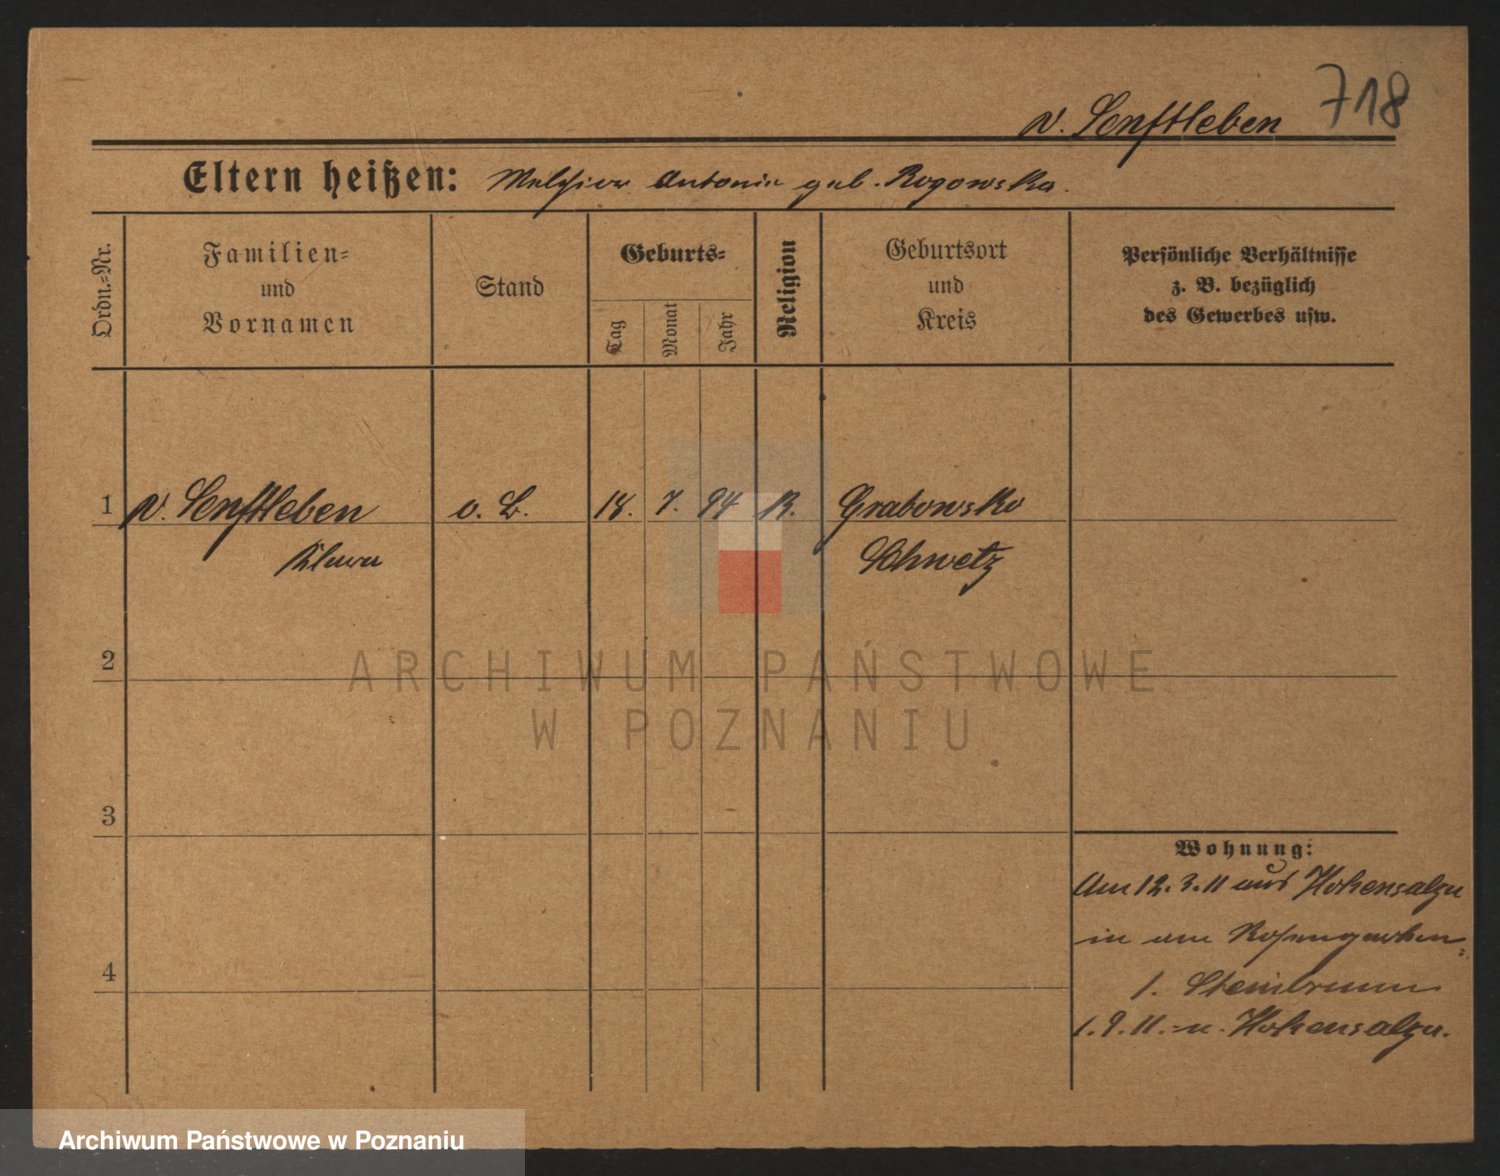 718
v. Senftleben
Eltern heißen: Melchior Antonie geb. Rogowska.
Ordn.=Nr.
Familien=
und
Vornamen
Stand
Geburts=
Tag
Monat
Jahr
Religion
Geburtsort
und
Kreis
Persönliche Verhältnisse
z. B. bezüglich
des Gewerbes usw.
1 v. Senftleben o. B. 18. 7. 94 K. Grabowsko
Klara Schwetz
2
3
4
Wohnung:
Am 12. 3. 11 aus Hohensalza
in am Rosengarten
1. Steinbrunn
1. 9. 11. n. Hohensalza.
ARCHIWUM PAŃSTWOWE
W POZNANIU
Archiwum Państwowe w Poznaniu